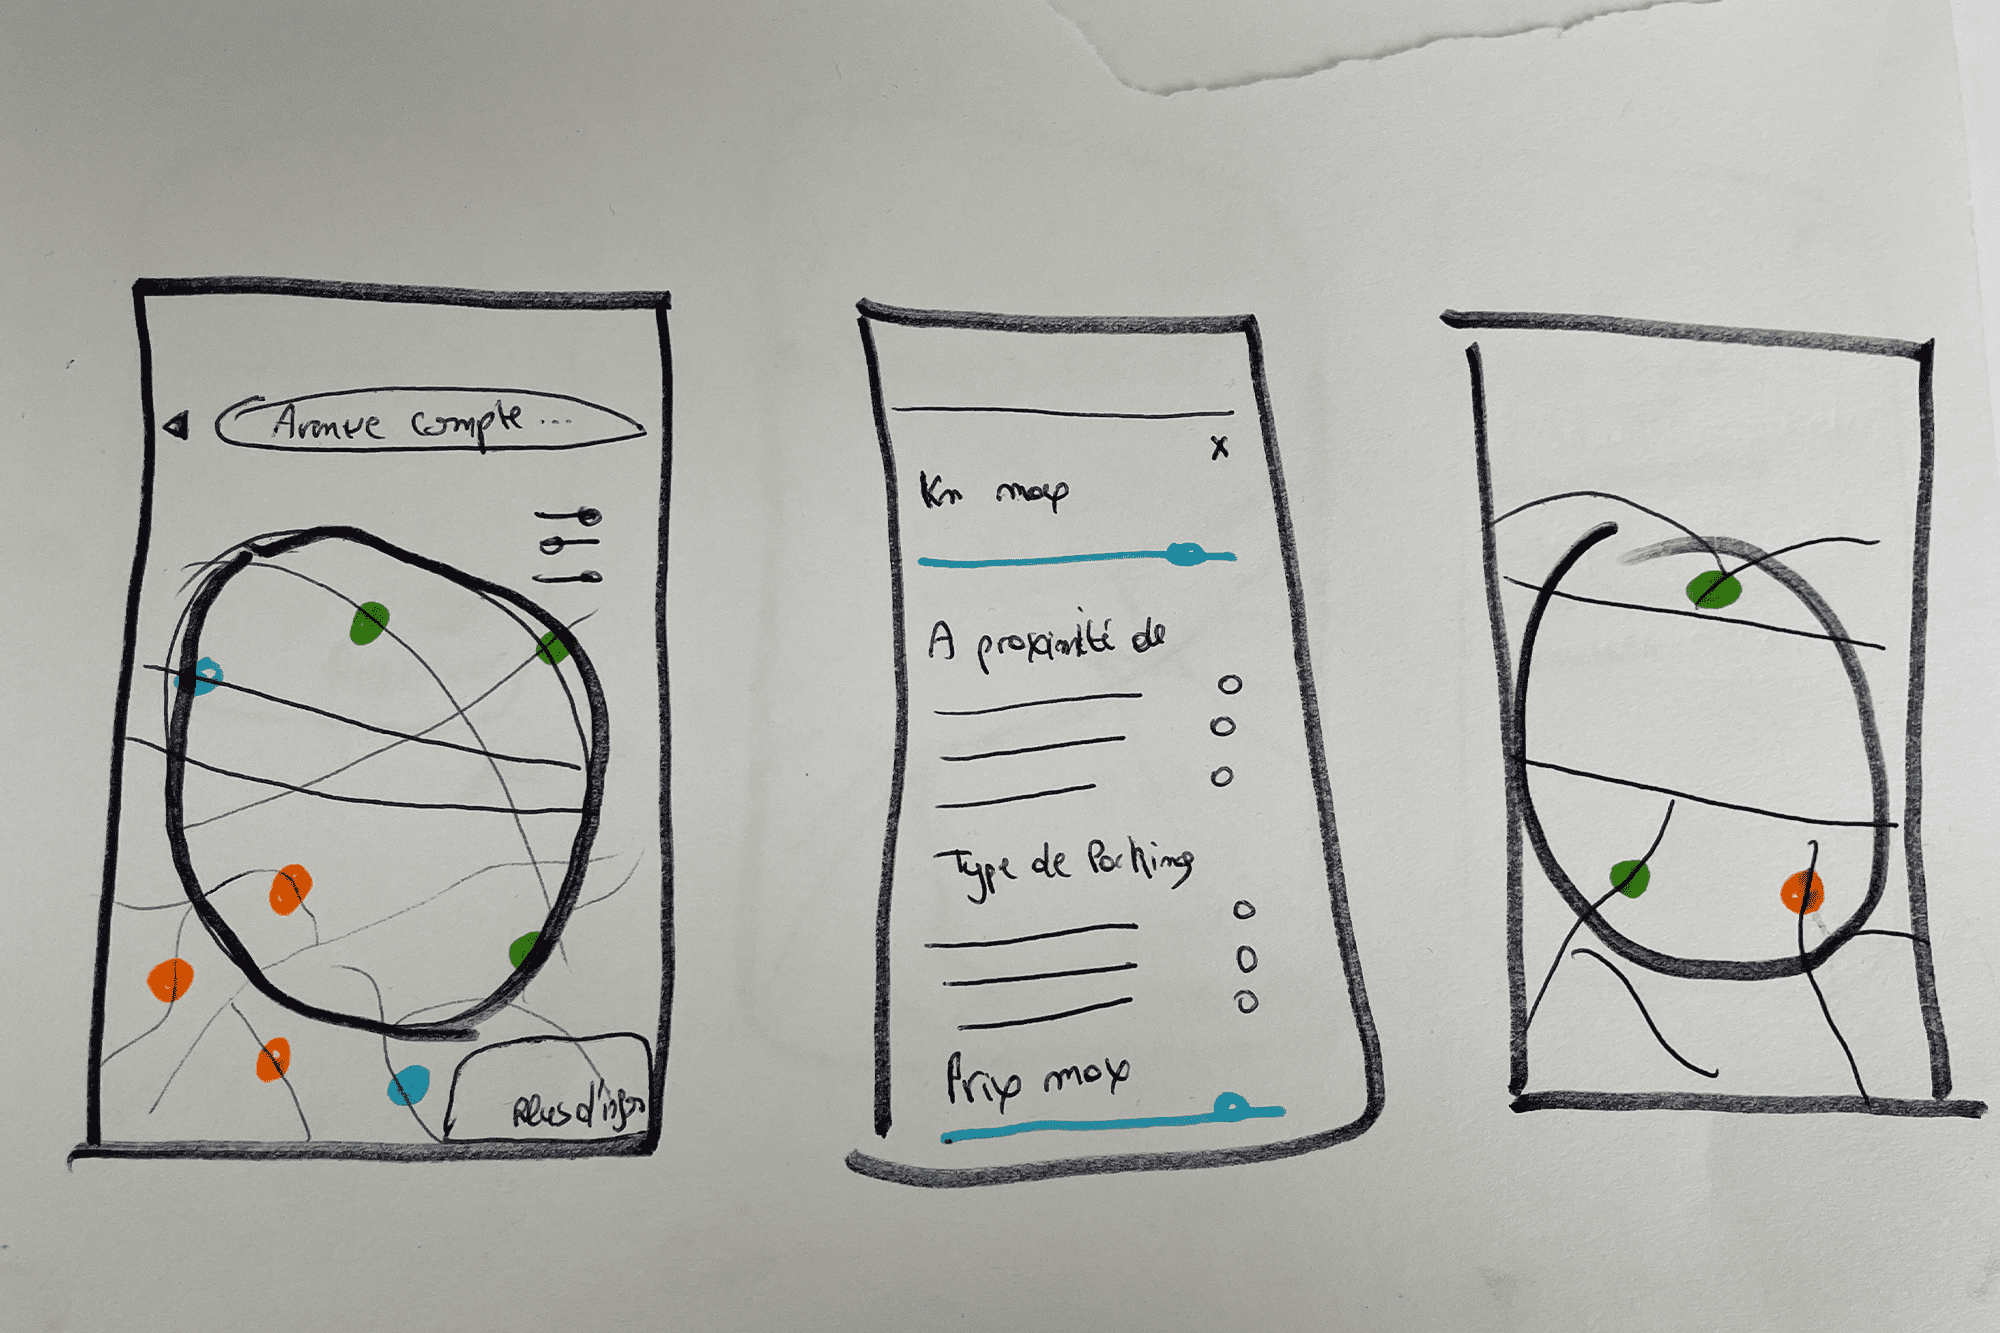 Avenue compte ...
Plus d'infos
X
Km max
A proximité de
Type de Parking
Prix max